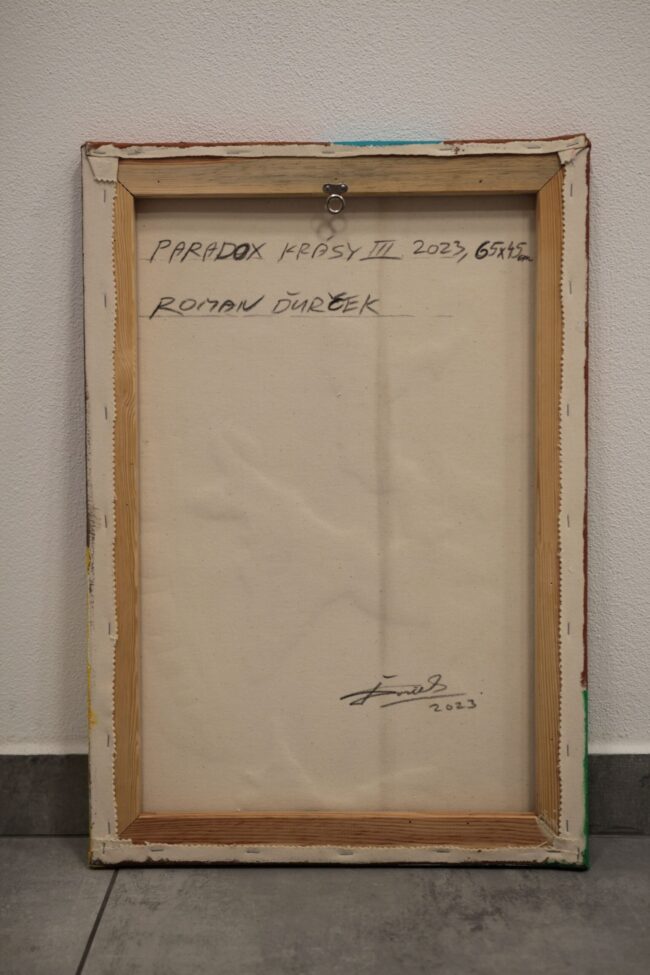 PARADOX KRÁSY III. 2023, 65x45cm
ROMAN ĎURČEK
2023